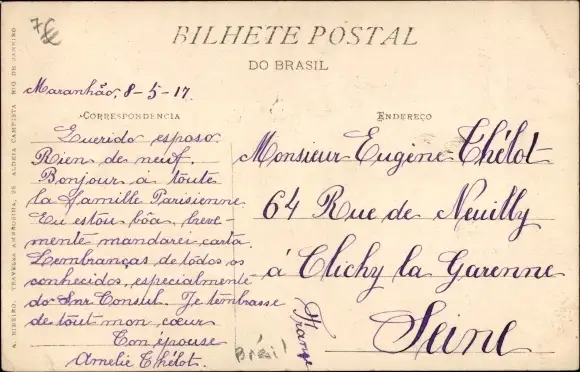 7€
BILHETE POSTAL
DO BRASIL
Maranhão, 8-5-17.
CORRESPONDENCIA
Querido esposo.
Rien de neuf.
Bonjour a toute
la famille Parisienne.
Eu estou bôa, breve-
mente mandarei carta.
Lembranças de todos os
conhecidos, especialmente
do Snr Consul. Je t'embrasse
de tout mon cœur
Ton épouse
Amelie Thélot.
ENDEREÇO
Monsieur Eugène Thélot
64 Rue de Neuilly
á Clichy la Garenne
Seine
France
Brésil
A. RIBEIRO. TRAVESSA AMBROSINA, 26 ALDEIA CAMPISTA RIO DE JANEIRO